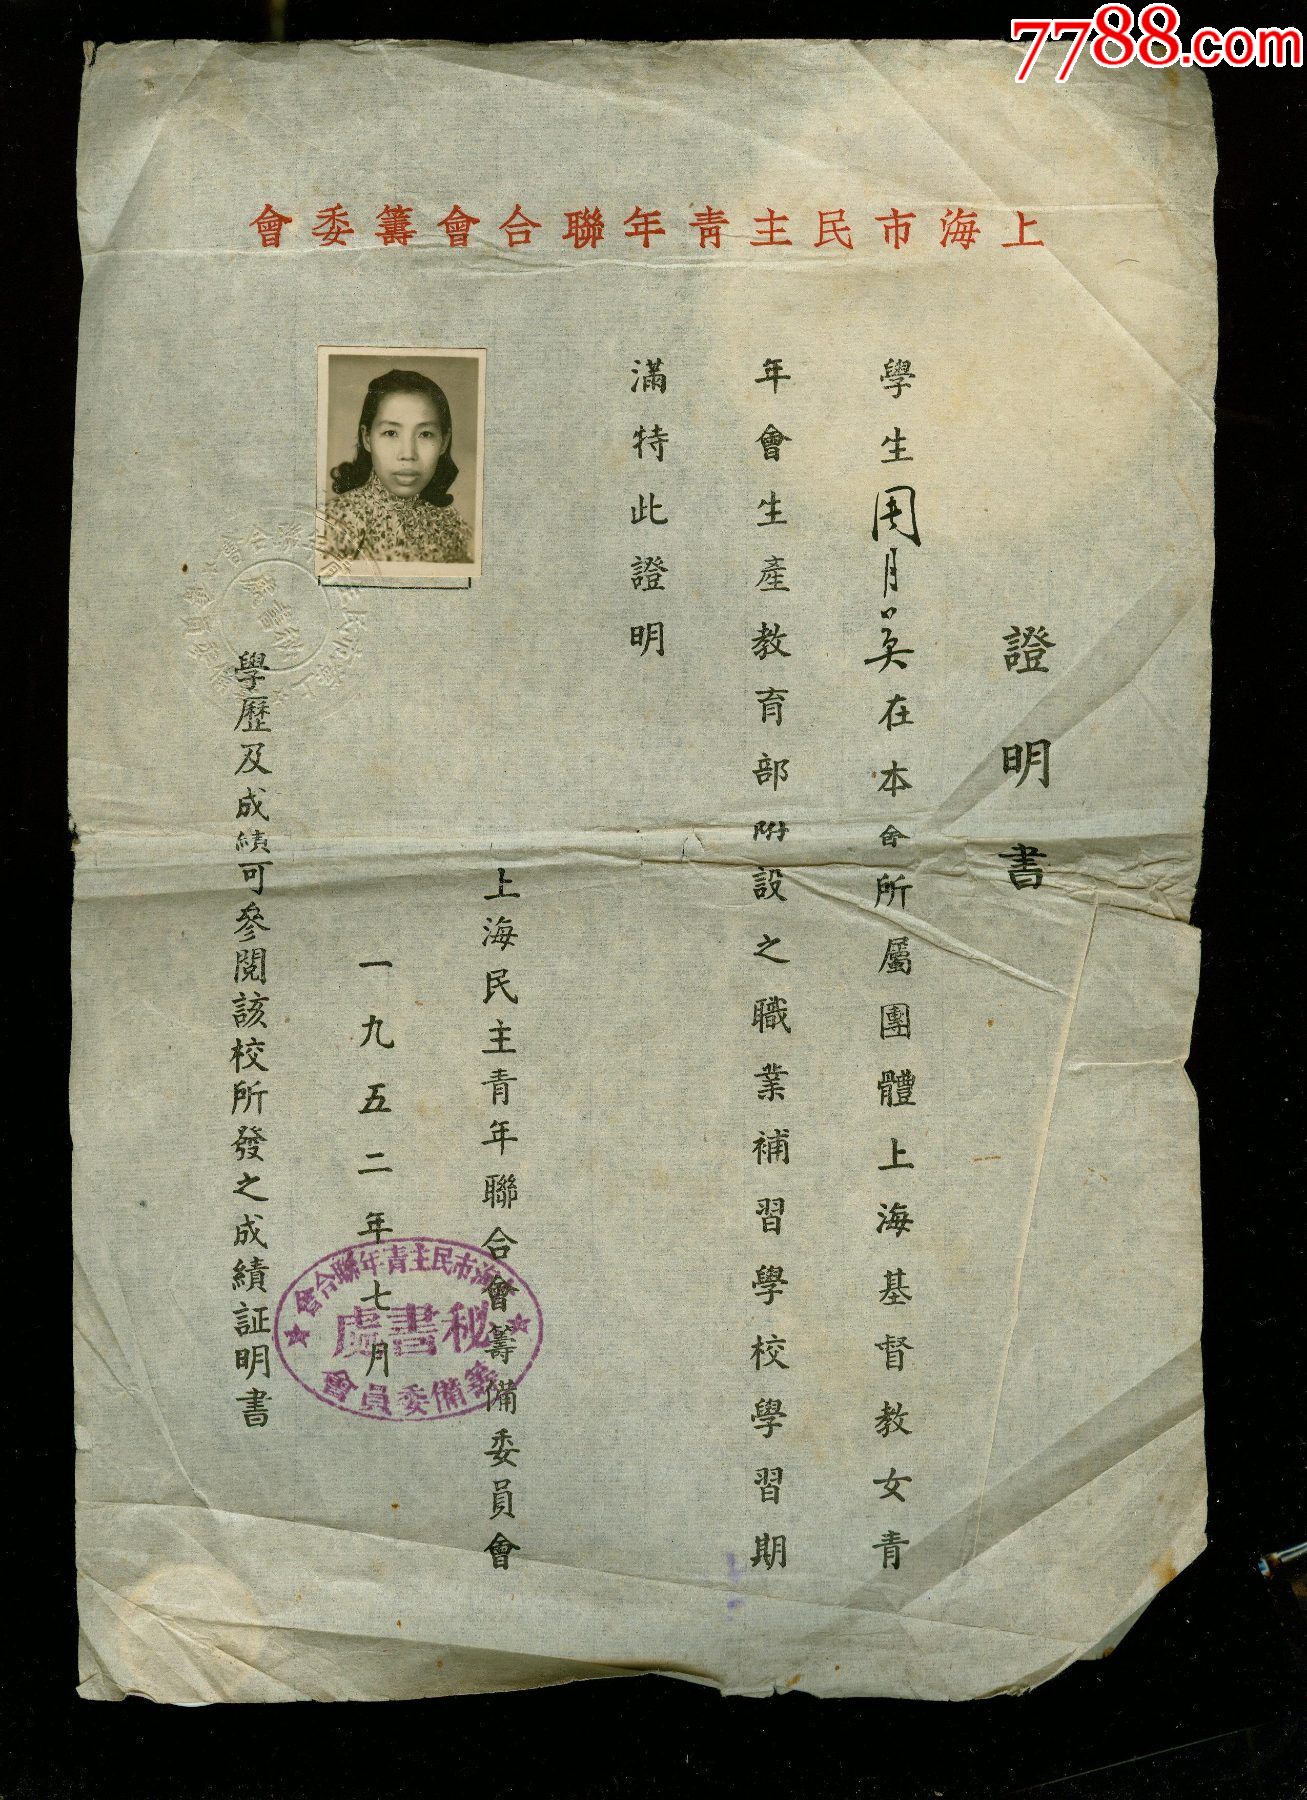 7788.com
上海市民主青年聯合會籌委會
證明書
學生周月英在本會所屬團體上海基督教女青
年會生產教育部附設之職業補習學校學習期
滿特此證明
上海民主青年聯合會籌備委員會
一九五二年七月
學歷及成績可參閱該校所發之成績証明書
上海市民主青年聯合會
秘書處
籌備委員會